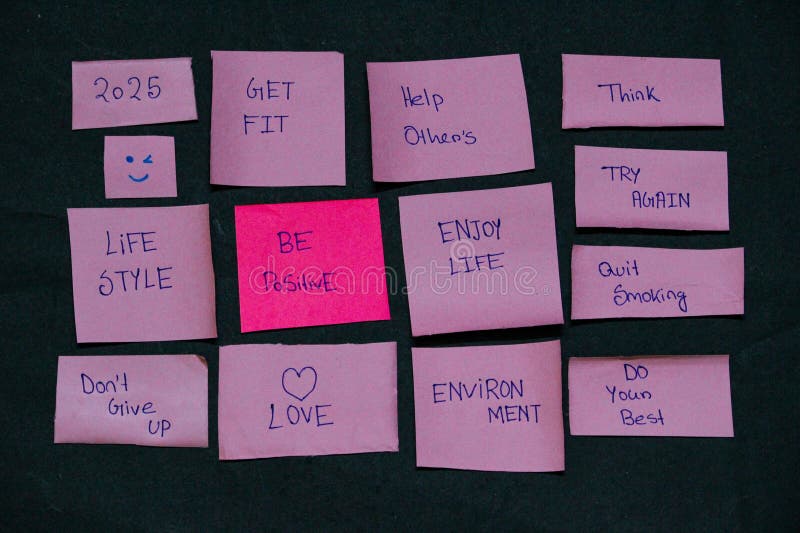 2025
GET
FIT
Help
Other's
Think
TRY
AGAIN
LiFE
STYLE
BE
PoSitivE
ENJOY
LIFE
Quit
Smoking
Don't
Give
UP
LOVE
ENViRON
MENT
DO
Your
Best
dreamstime